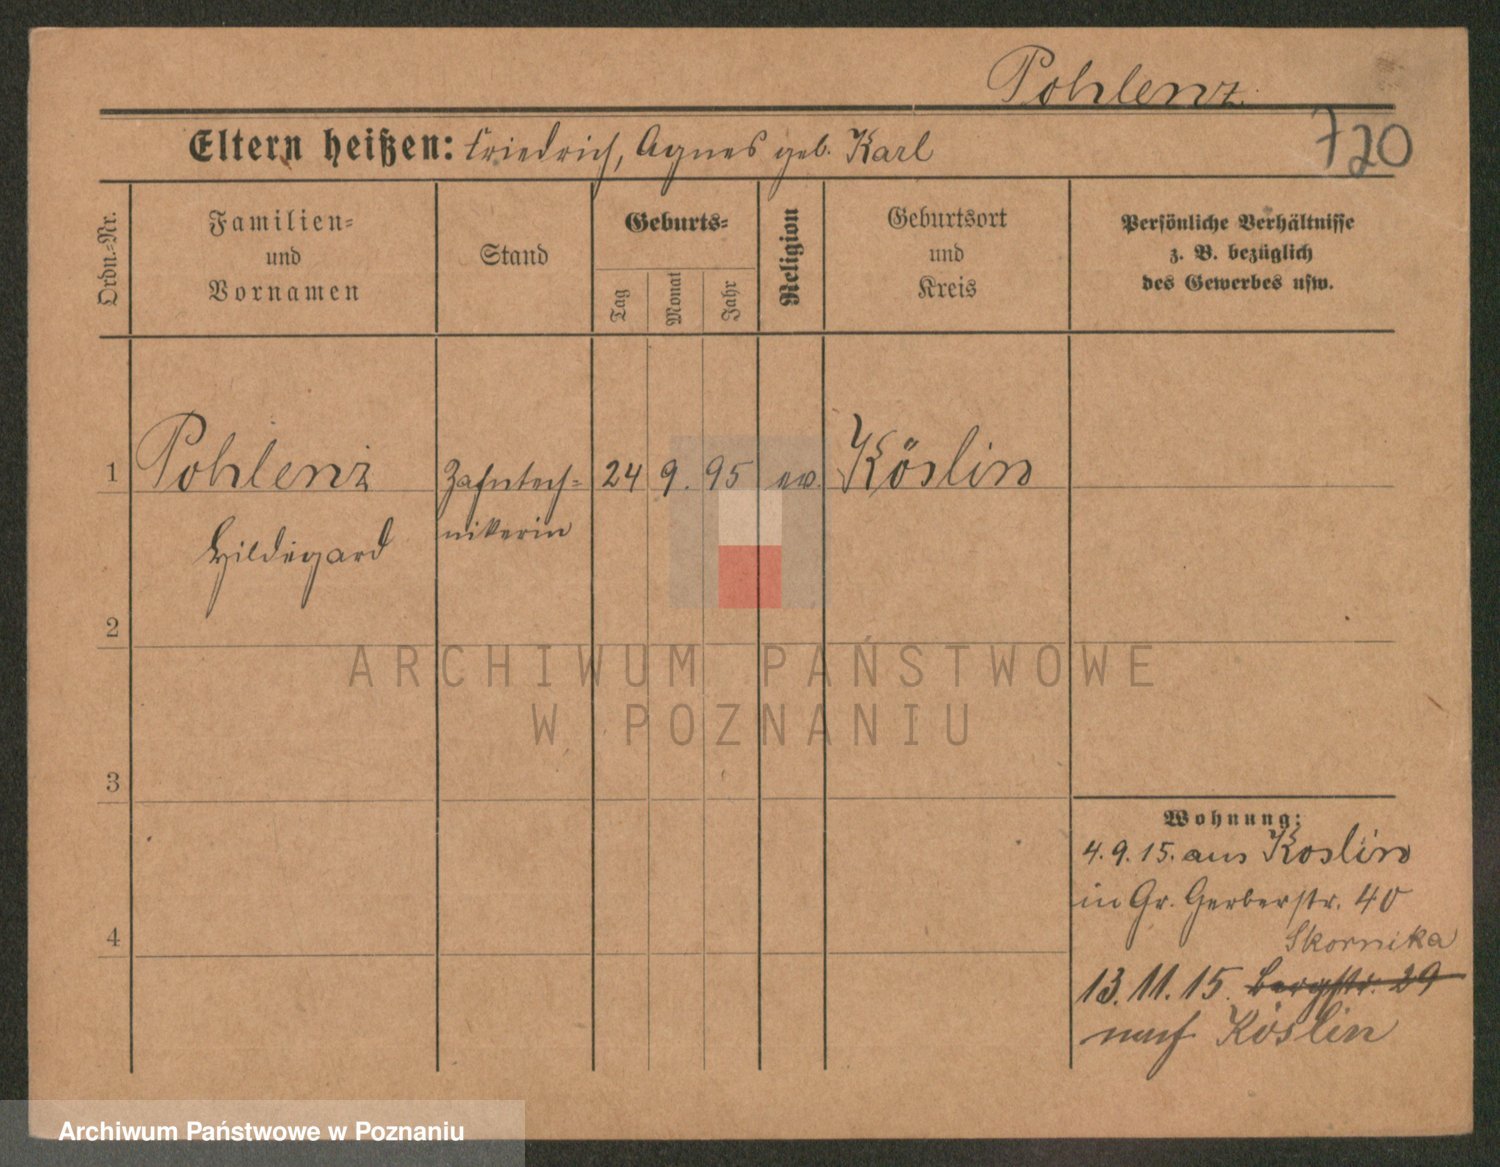 Pohlenz.
720
Eltern heißen: Friedrich, Agnes geb. Karl
Ordn.=Nr.
Familien=
und
Vornamen
Stand
Geburts=
Tag
Monat
Jahr
Religion
Geburtsort
und
Kreis
Persönliche Verhältnisse
z. B. bezüglich
des Gewerbes usw.
1 Pohlenz Zahntech= 24 9. 95 ev. Köslin
Hildegard nikerin
2
3
4
Wohnung:
4.9.15. aus Koslin
in Gr. Gerberstr. 40
Skornika
13.11.15. Bergstr. 29
nach Köslin
ARCHIWUM PAŃSTWOWE
W POZNANIU
Archiwum Państwowe w Poznaniu